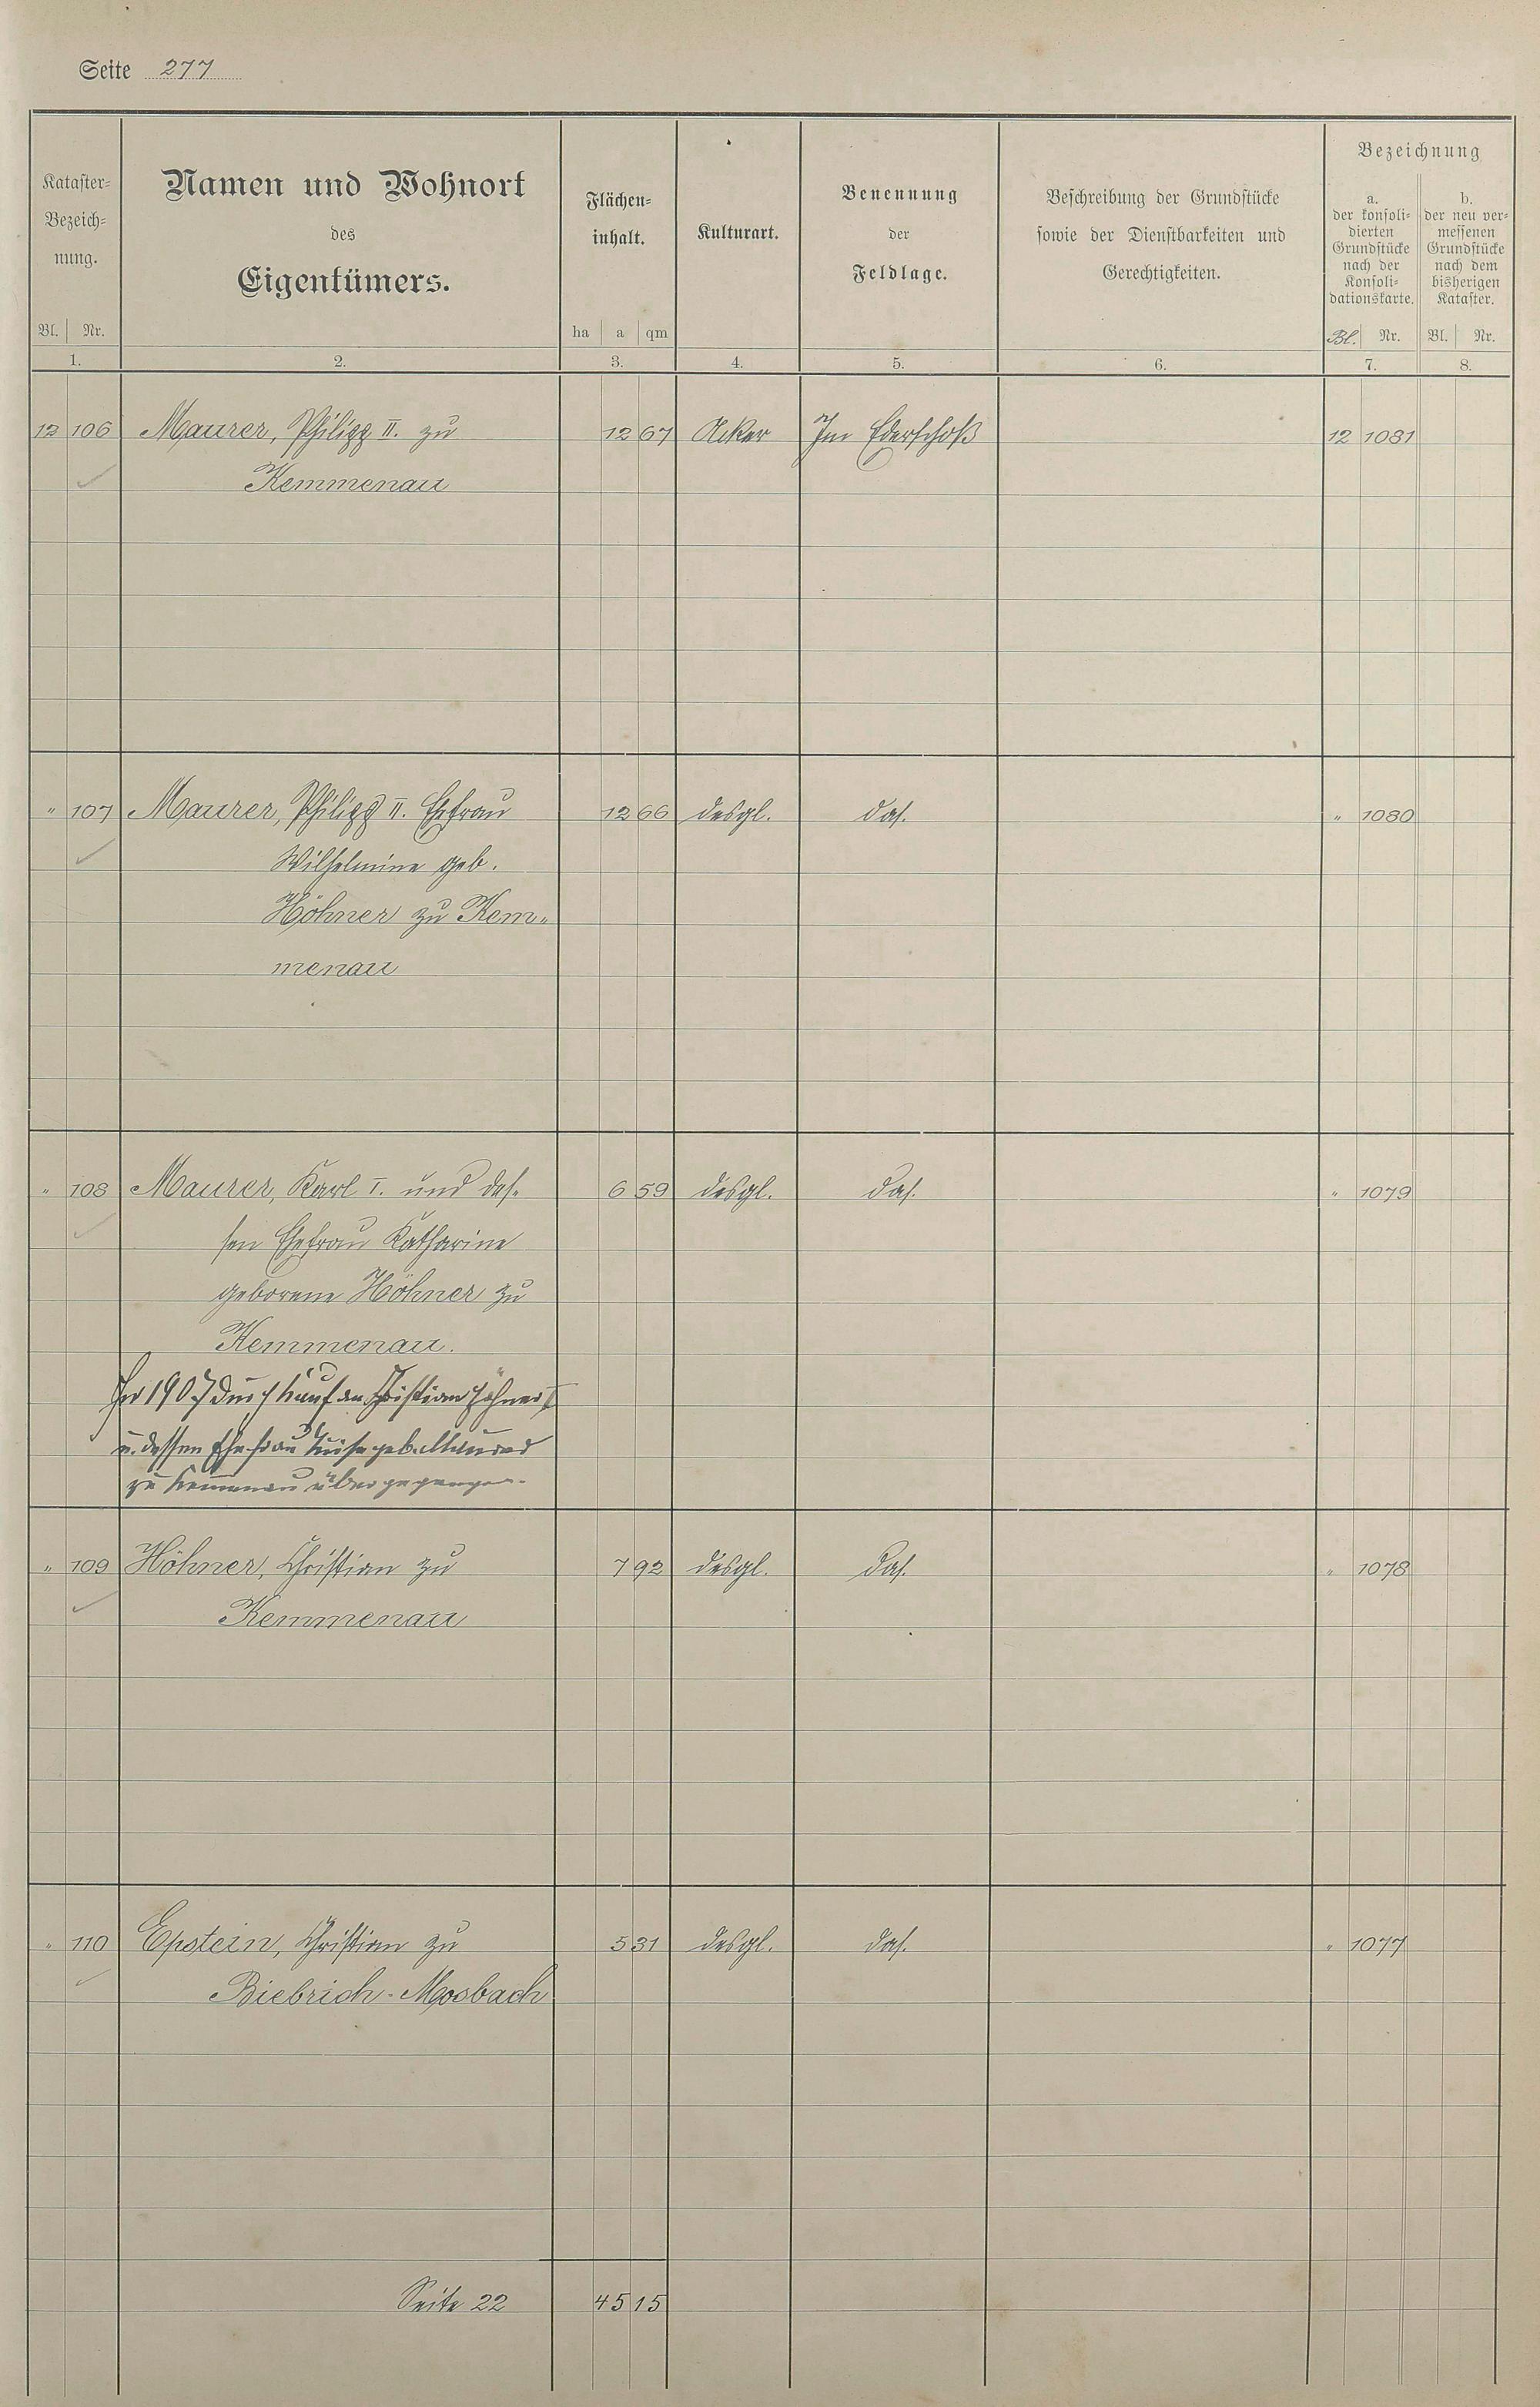 Seite 277
Kataster-
Bezeich-
nung.
Bl. Nr.
1.
Namen und Wohnort
des
Eigentümers.
2.
Flächen-
inhalt.
ha a qm
3.
Kulturart.
4.
Benennung
der
Feldlage.
5.
Beschreibung der Grundstücke
sowie der Dienstbarkeiten und
Gerechtigkeiten.
6.
Bezeichnung
a.
der konsoli-
dierten
Grundstücke
nach der
Konsoli-
dationskarte.
Bl. Nr.
7.
b.
der neu ver-
messenen
Grundstücke
nach dem
bisherigen
Kataster.
Bl. Nr.
8.
12 106 Maurer, Philipp II. zu 12 67 Acker Im 12 1081
Kemmenau
" 107 Maurer, Philipp II. Ehefrau 12 66 desgl. das. " 1080
Wilhelmine geb.
Höhner zu Kem-
menau
" 108 Maurer, Karl I. und des- 6 59 desgl. das. " 1079
sen Ehefrau Katharine
geborene Höhner zu
Kemmenau.
1907 durch Kauf an Christian Höhner I
u. dessen Ehefrau Luise geb. Maurer
zu Kemmenau übergegangen.
" 109 Höhner, Christian zu 7 92 desgl. das. " 1078
Kemmenau
" 110 Epstein, Christian zu 5 31 desgl. das. " 1077
Biebrich-Mosbach
Seite 22 45 15